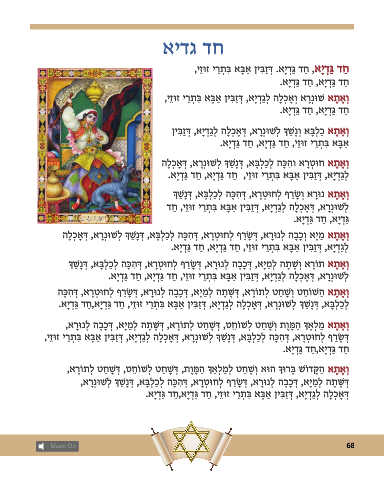 חד גדיא
חַד גַּדְיָא, חַד גַּדְיָא. דְּזַבִּין אַבָּא בִּתְרֵי זוּזֵי,
חַד גַּדְיָא, חַד גַּדְיָא.
וְאָתָא שׁוּנְרָא וְאָכְלָה לְגַדְיָא, דְּזַבִּין אַבָּא בִּתְרֵי זוּזֵי,
חַד גַּדְיָא, חַד גַּדְיָא.
וְאָתָא כַלְבָּא וְנָשַׁךְ לְשׁוּנְרָא, דְּאָכְלָה לְגַדְיָא, דְּזַבִּין
אַבָּא בִּתְרֵי זוּזֵי, חַד גַּדְיָא, חַד גַּדְיָא.
וְאָתָא חוּטְרָא וְהִכָּה לְכַלְבָּא, דְּנָשַׁךְ לְשׁוּנְרָא, דְּאָכְלָה
לְגַדְיָא, דְּזַבִּין אַבָּא בִּתְרֵי זוּזֵי, חַד גַּדְיָא, חַד גַּדְיָא.
וְאָתָא נוּרָא וְשָׂרַף לְחוּטְרָא, דְּהִכָּה לְכַלְבָּא, דְּנָשַׁךְ
לְשׁוּנְרָא, דְּאָכְלָה לְגַדְיָא, דְּזַבִּין אַבָּא בִּתְרֵי זוּזֵי, חַד
גַּדְיָא, חַד גַּדְיָא.
וְאָתָא מַיָּא וְכָבָה לְנוּרָא, דְּשָׂרַף לְחוּטְרָא, דְּהִכָּה לְכַלְבָּא, דְּנָשַׁךְ לְשׁוּנְרָא, דְּאָכְלָה
לְגַדְיָא, דְּזַבִּין אַבָּא בִּתְרֵי זוּזֵי, חַד גַּדְיָא, חַד גַּדְיָא.
וְאָתָא תוֹרָא וְשָׁתָה לְמַיָּא, דְּכָבָה לְנוּרָא, דְּשָׂרַף לְחוּטְרָא, דְּהִכָּה לְכַלְבָּא, דְּנָשַׁךְ
לְשׁוּנְרָא, דְּאָכְלָה לְגַדְיָא, דְּזַבִּין אַבָּא בִּתְרֵי זוּזֵי, חַד גַּדְיָא, חַד גַּדְיָא.
וְאָתָא הַשּׁוֹחֵט וְשָׁחַט לְתוֹרָא, דְּשָׁתָה לְמַיָּא, דְּכָבָה לְנוּרָא, דְּשָׂרַף לְחוּטְרָא, דְּהִכָּה
לְכַלְבָּא, דְּנָשַׁךְ לְשׁוּנְרָא, דְּאָכְלָה לְגַדְיָא, דְּזַבִּין אַבָּא בִּתְרֵי זוּזֵי, חַד גַּדְיָא,חַד גַּדְיָא.
וְאָתָא מַלְאַךְ הַמָּוֶת וְשָׁחַט לְשׁוֹחֵט, דְּשָׁחַט לְתוֹרָא, דְּשָׁתָה לְמַיָּא, דְּכָבָה לְנוּרָא,
דְּשָׂרַף לְחוּטְרָא, דְּהִכָּה לְכַלְבָּא, דְּנָשַׁךְ לְשׁוּנְרָא, דְּאָכְלָה לְגַדְיָא, דְּזַבִּין אַבָּא בִּתְרֵי זוּזֵי,
חַד גַּדְיָא,חַד גַּדְיָא.
וְאָתָא הַקָּדוֹשׁ בָּרוּךְ הוּא וְשָׁחַט לְמַלְאַךְ הַמָּוֶת, דְּשָׁחַט לְשׁוֹחֵט, דְּשָׁחַט לְתוֹרָא,
דְּשָׁתָה לְמַיָּא, דְּכָבָה לְנוּרָא, דְּשָׂרַף לְחוּטְרָא, דְּהִכָּה לְכַלְבָּא, דְּנָשַׁךְ לְשׁוּנְרָא,
דְּאָכְלָה לְגַדְיָא, דְּזַבִּין אַבָּא בִּתְרֵי זוּזֵי, חַד גַּדְיָא,חַד גַּדְיָא.
Music On
68